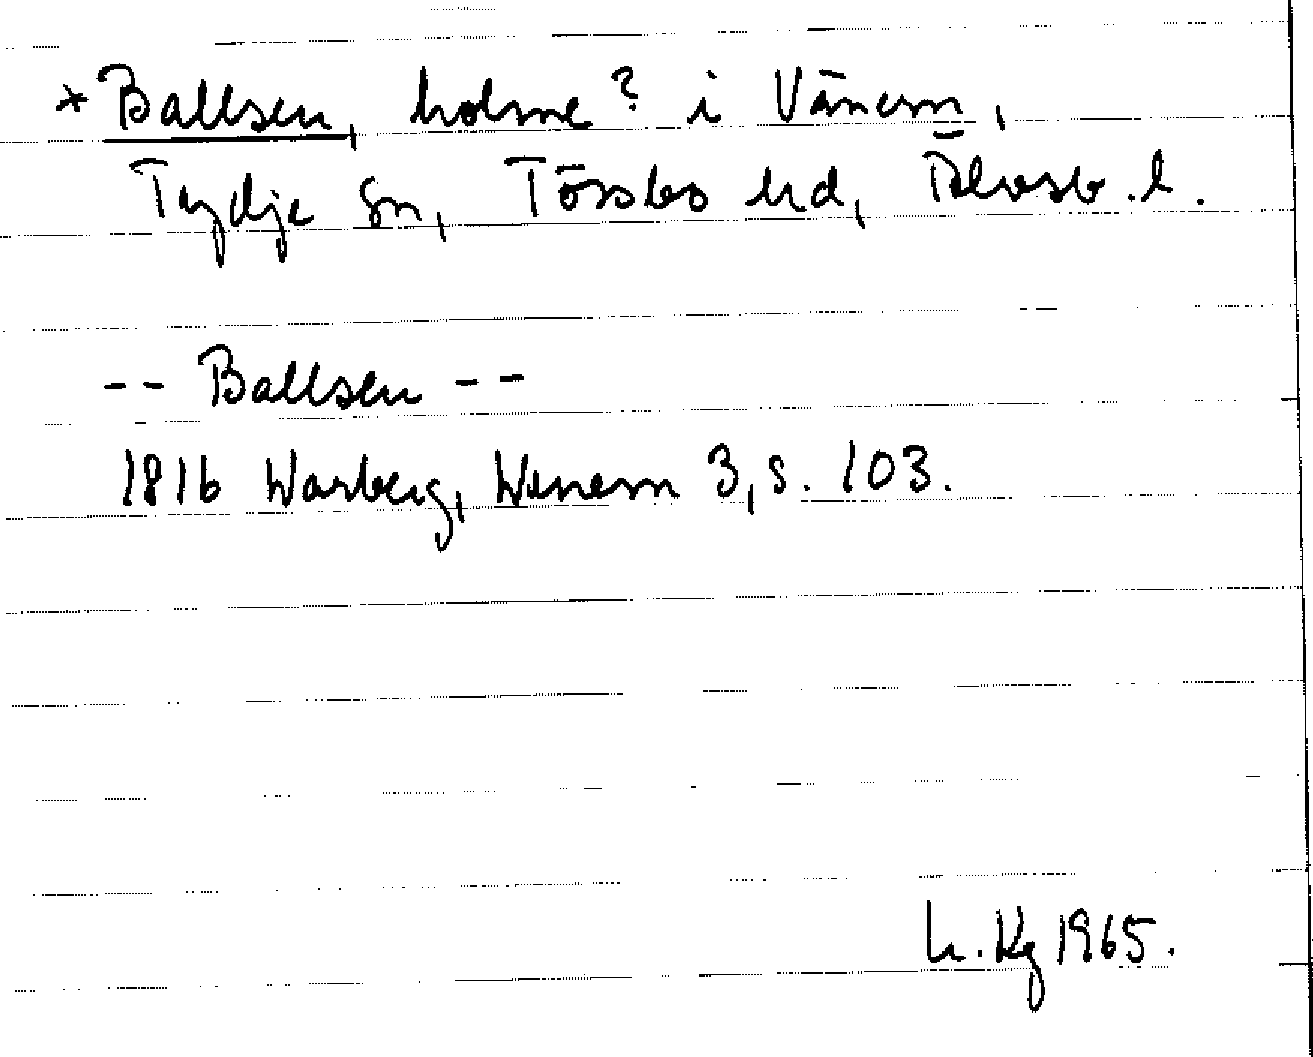 *Ballsen, holme? i Vänern,
Tydje sn, Tössbo hd, Älvsb. l.
-- Ballsen --
1816 Warberg, Wenern 3, s. 103.
h. Kg 1965.